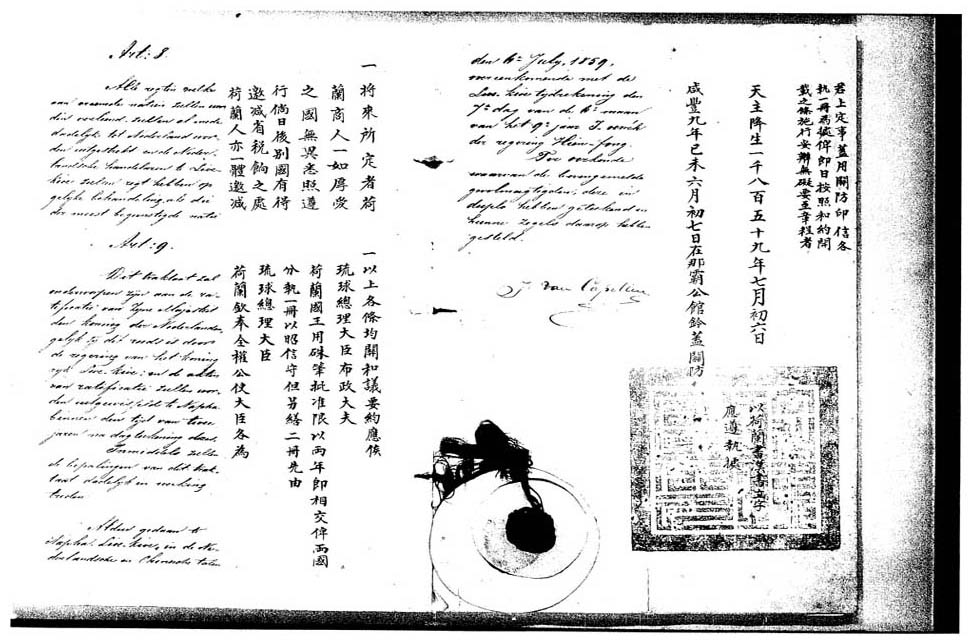 Art: 8.
Alle regten welke
aan vreemde natien zullen wor
den verleend, zullen al mede
dadelijk tot Nederland wor-
den uitgestrekt en de Neder-
landsche handelaren te Lioe-
kioe zullen regt hebben op
gelijke behandeling als die
der meest begunstigde natie
一將來所定者荷
蘭商人一如厚愛
之國無異悉照遵
行倘日後別國有得
邀減省稅餉之處
荷蘭人亦一體邀減
Art: 9.
Dit traktaat zal
onderworpen zijn aan de ra-
tificatie van Zyne Majesteit
den koning der Nederlanden
gelijk zij dit reeds is door
de regering van het koning
ryk Lioe-kioe; en de akten
van ratificatie zullen wor-
den uitgewisseld te Napha
binnen den tijd van twee
jaren na dagteekening dezes.
Inmiddels zullen
de bepalingen van dit trak-
taat dadelijk in werking
treden
Aldus gedaan te
Napha, Lioe-kioe, in de Ne-
derlandsche en Chinesche talen
一以上各條均關和議要約應候
琉球總理大臣布政大夫
荷蘭國王用硃筆批准限以兩年即相交俾兩國
分執一冊以昭信守但另繕二冊先由
琉球總理大臣
荷蘭欽奉全權公使大臣各為
den 6n July, 1859,
overeenkomende met de
Lioe-kioe tydrekening den
7n dag van de 6e maan
van het 9e jaar
der regering Hien-fong.
Ten oirkonde
waarvan de bovengemelde
gevolmagtigden deze in
duplo hebben geteekend en
hunne zegels daarop hebben
gesteld.
J. van Capellen
君上定事蓋用關防印信各
執一冊爲據俾即日按照和約開
載之條施行妥辦無礙要至章程者
天主降生一千八百五十九年七月初六日
咸豐九年己未六月初七日在那霸公館鈐蓋關防
以荷蘭書漢書文字
應遵執據